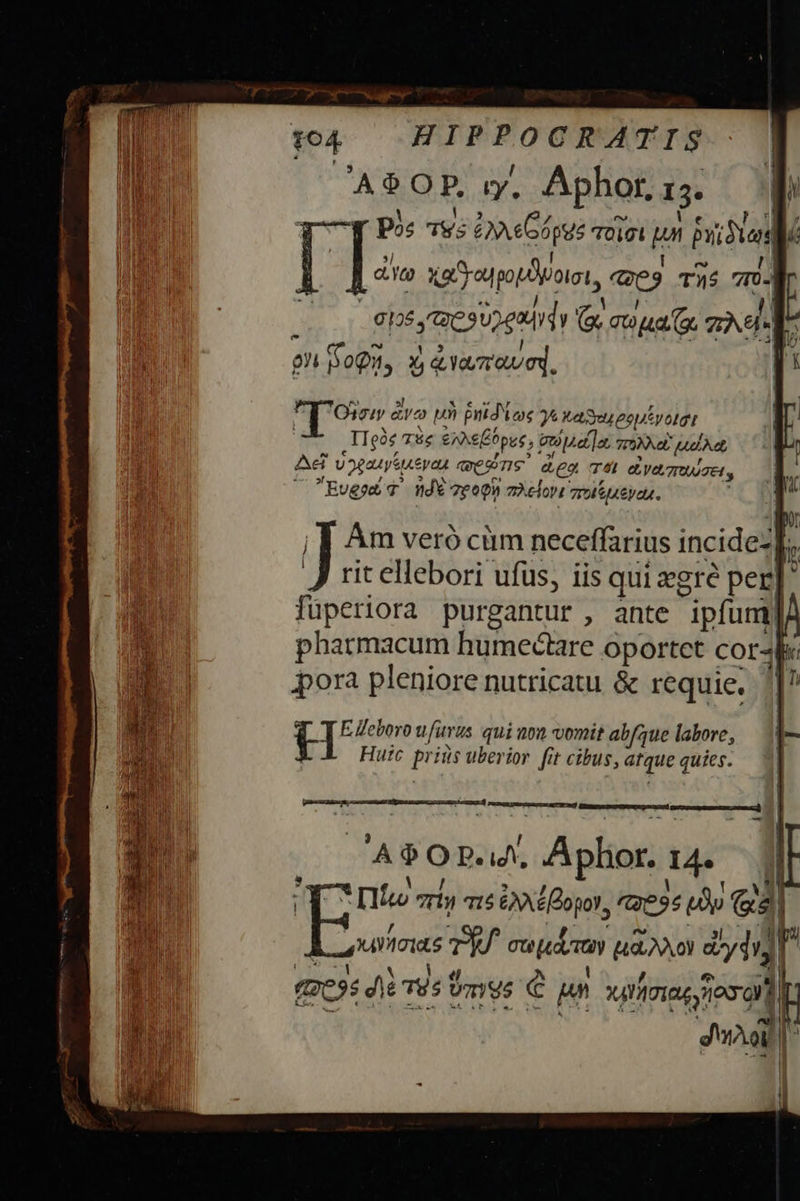 104 HIPPOCRATIS
ἈΦΟΡ. ιγ΄. Aphor. 13.
Πρὸς τοὺς ἐλλεβόρους τοῖσι μὴ ῥηϊδίως
ἄνω καθαιρομένοισι, πρὸ τῆς πό-
σιος, προϋγραίνειν τὰ σώματα πλεί-
ονι τροφῇ, καὶ ἀναπαύσει.
Τοῖσιν ἄνω μὴ ῥηϊδίως γε καθαιρομένοισι
Πρὸς τοὺς ἐλλεβόρους, σώματα πολλὰ μάλα
Δεῖ ὑγραινέμεναι
πλείονι
Iam verò cùm necessarius incide-
rit ellebori usus, iis qui ægrè per
superiora purgantur, ante ipsum
pharmacum humectare oportet cor-
pora pleniore nutricatu & requie.
HElleboro usurus qui non vomit absque labore,
Huic priùs uberior fit cibus, atque quies.
ἈΦΟΡ. ιδ΄. Aphor. 14.
Ἐπὴν πίῃ τις ἐλλέβορον, πρὸς μὲν τὰς
κινήσιας τῶν σωμάτων μᾶλλον ἄγειν,
πρὸς δὲ τοὺς ὕπνους καὶ μὴ κινήσιας, ἧσσον
δηλοῖ